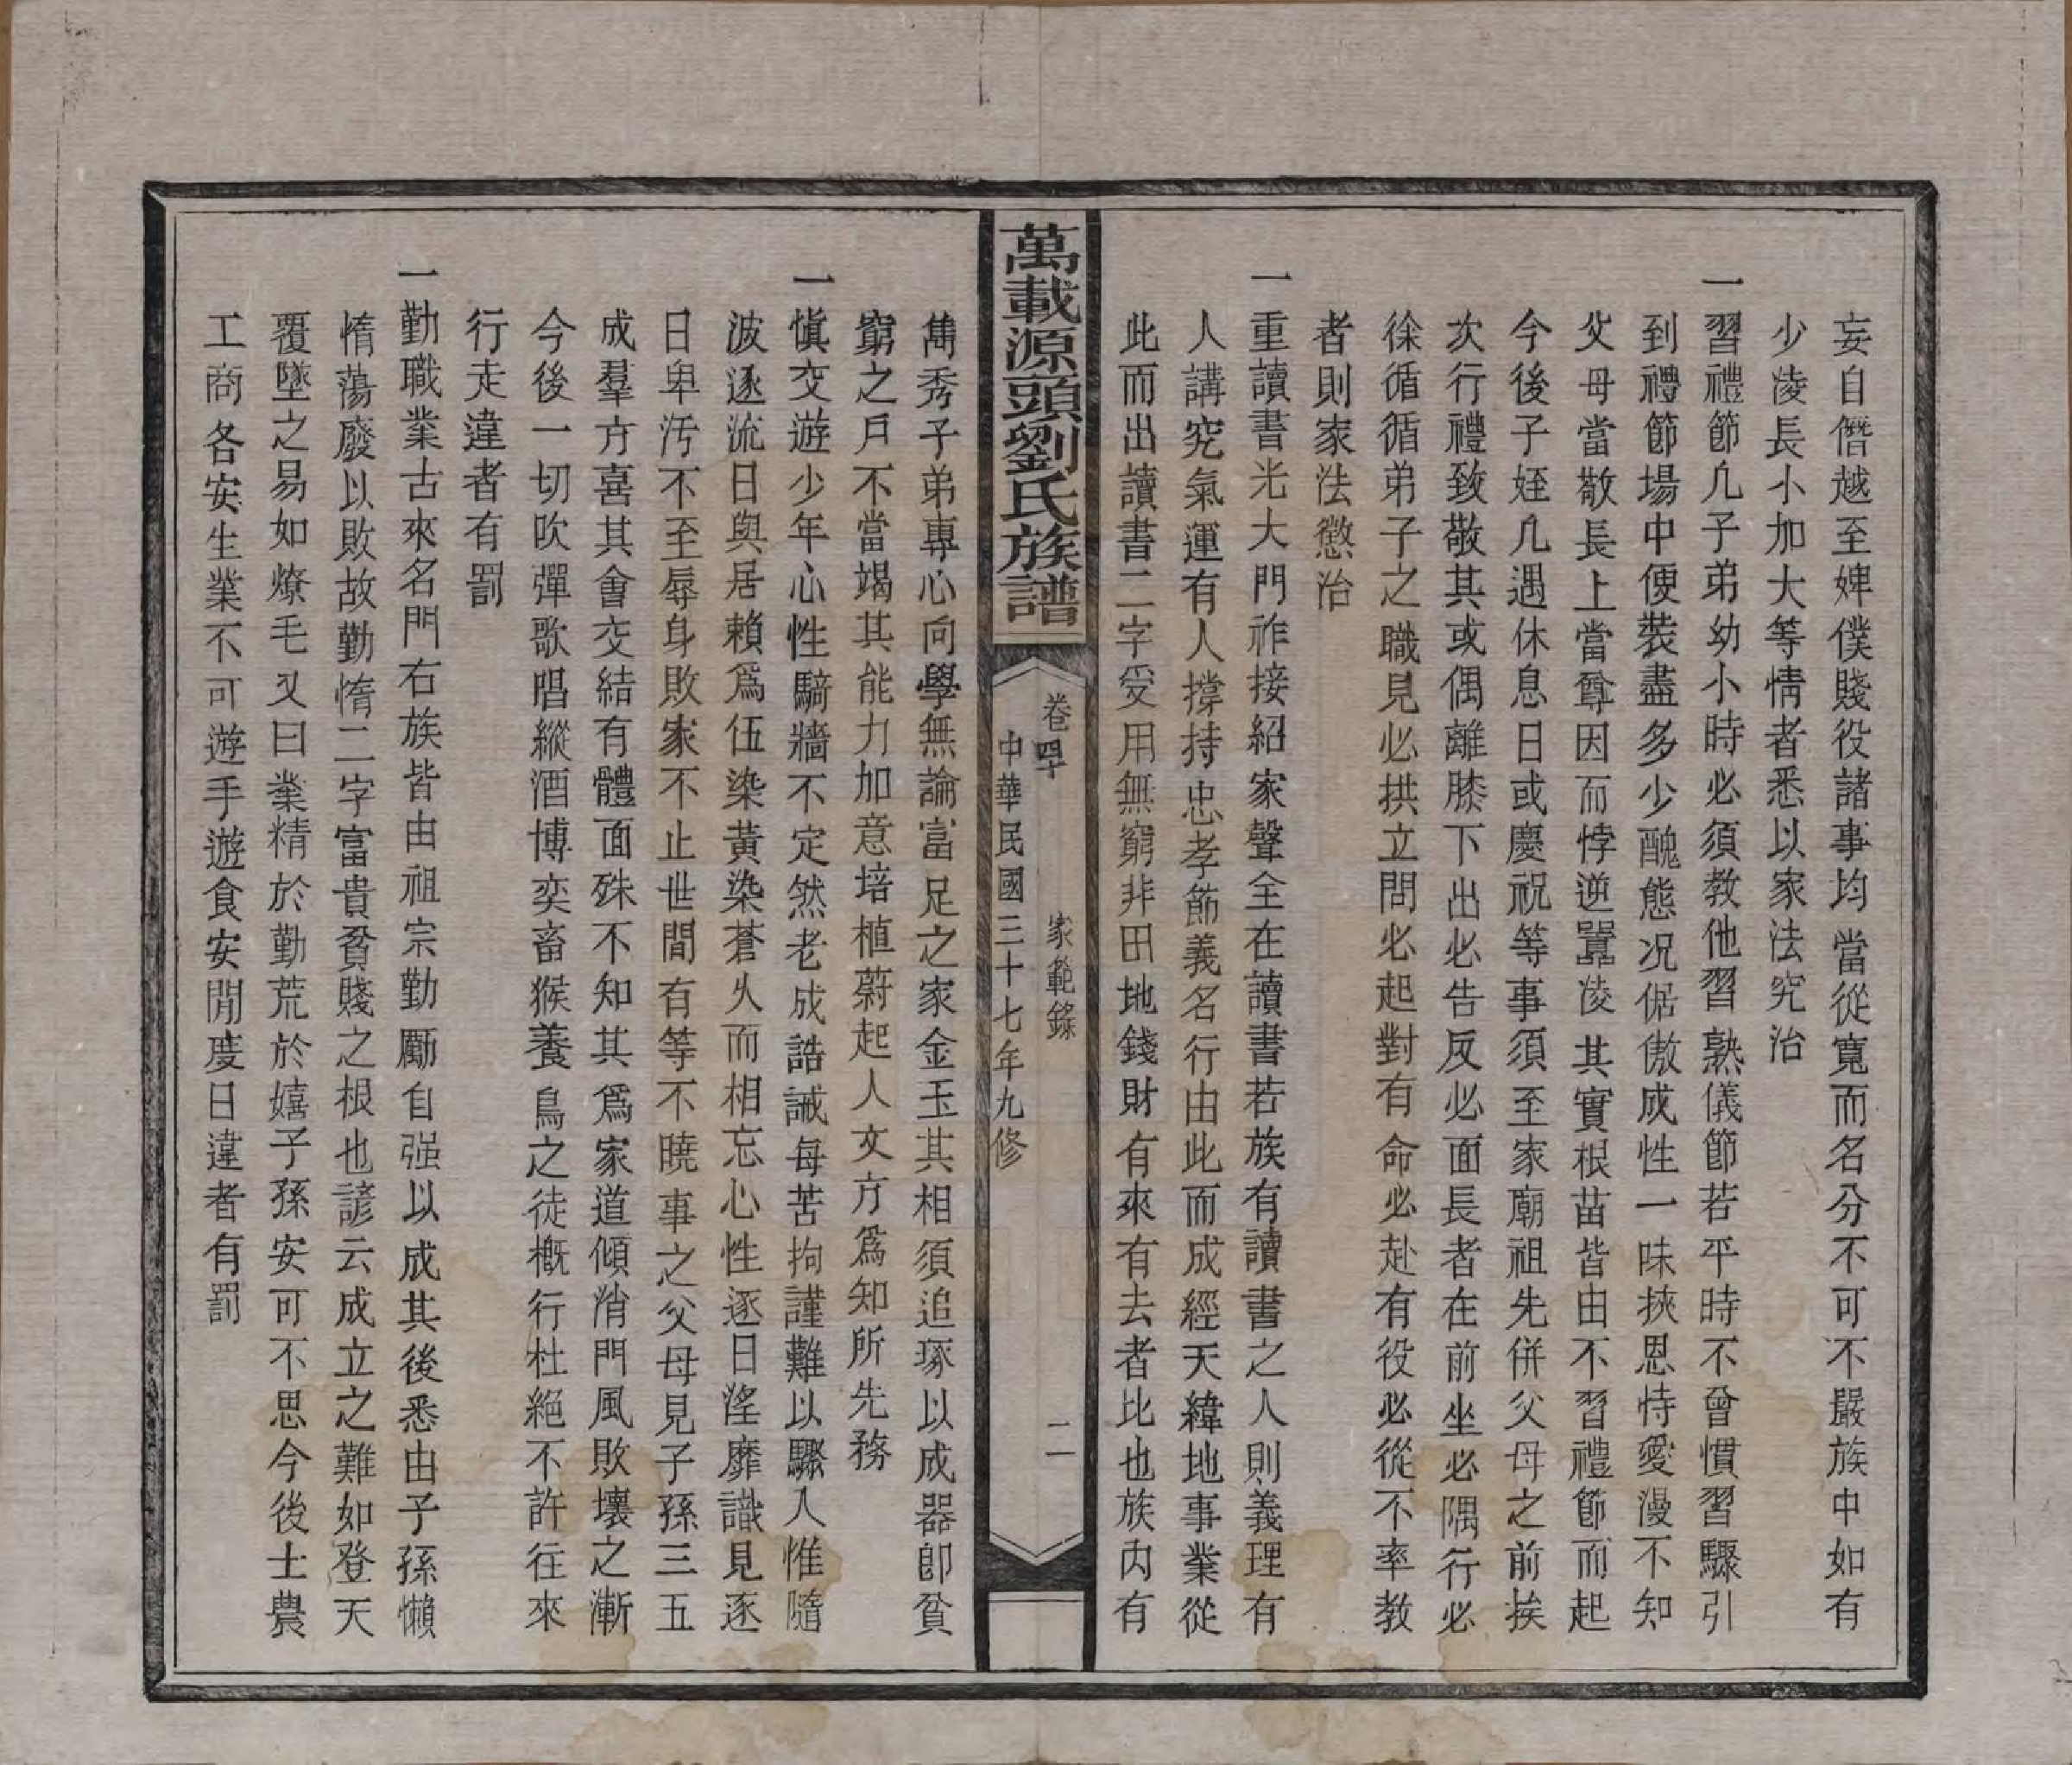 妄自僭越至婢僕賤役諸事均當從寬而名分不可不嚴族中如有
少淩長小加大等情者悉以家法究治
一習禮節凡子弟幼小時必須教他習熟儀節若平時不曾慣習驟引
到禮節場中便裝盡多少醜態况倨傲成性一味挾恩恃愛漫不知
父母當敬長上當尊因而悖逆囂淩其實根苗皆由不習禮節而起
今後子姪凡遇休息日或慶祝等事須至家廟祖先併父母之前挨
次行禮致敬其或偶離膝下出必告反必面長者在前坐必隅行必
徐循循弟子之職見必拱立問必起對有命必赴有役必從不率教
者則家法懲治
一重讀書光大門祚接紹家聲全在讀書若族有讀書之人則義理有
人講究氣運有人撐持忠孝節義名行由此而成經天緯地事業從
此而出讀書二字受用無窮非田地錢財有來有去者比也族内有
萬載源頭劉氏族譜
卷四十 家範錄 二
中華民國三十七年九修
雋秀子弟專心向學無論富足之家金玉其相須追琢以成器卽貧
窮之戶不當竭其能力加意培植蔚起人文方爲知所先務
一慎交遊少年心性騎牆不定然老成誥誡每苦拘謹難以驟人惟隨
波逐流日與居賴爲伍染黃染蒼久而相忘心性逐日淫靡識見逐
日卑汚不至辱身敗家不止世間有等不曉事之父母見子孫三五
成羣方喜其會交結有體面殊不知其爲家道傾消門風敗壞之漸
今後一切吹彈歌唱縱酒博奕畜猴養鳥之徒概行杜絕不許往來
行走違者有罰
一勤職業古來名門右族皆由祖宗勤勵自强以成其後悉由子孫懶
惰蕩廢以敗故勤惰二字富貴貧賤之根也諺云成立之難如登天
覆墜之易如燎毛又曰業精於勤荒於嬉子孫安可不思今後士農
工商各安生業不可遊手遊食安閒度日違者有罰